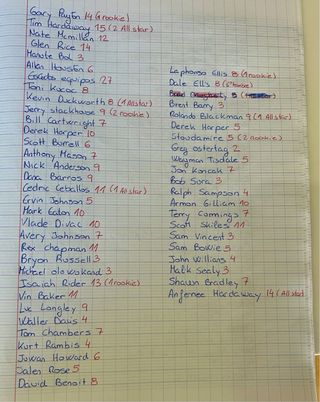 Gary Payton 14 (1 rookie)
Tim Hardaway 15 (2 All star)
Nate McMillan 12
Glen Rice 14
Manute Bol 3
Allan Houston 6
Escudo equipos 27
Toni Kucoc 8
Kevin Duckworth 8 (1 All star)
Jerry Stackhouse 9 (2 rookie)
Bill Cartwright 7
Derek Harper 10
Scott Burrell 6
Anthony Mason 7
Nick Anderson 9
Dana Barros 9
Cedric Ceballos 11 (1 All star)
Ervin Johnson 5
Mark Eaton 10
Vlade Divac 10
Avery Johnson 7
Rex Chapman 11
Bryon Russell 3
Michael Olowokandi 3
Isaiah Rider 13 (1 rookie)
Vin Baker 11
Luc Longley 9
Walter Davis 4
Tom Chambers 7
Kurt Rambis 4
Juwan Howard 6
Jalen Rose 5
David Benoit 8
Laphonso Ellis 8 (1 rookie)
Dale Ellis 8
Brent Barry 3
Rolando Blackman 9 (1 All star)
Derek Harper 5
Stoudamire 5 (2 rookie)
Greg Ostertag 2
Wayman Tisdale 5
Jon Koncak 7
Bob Sura 3
Ralph Sampson 4
Armon Gilliam 10
Terry Cummings 7
Scott Skiles 11
Sam Vincent 3
Sam Bowie 5
John Williams 4
Malik Sealy 3
Shawn Bradley 7
Anfernee Hardaway 14 (All star